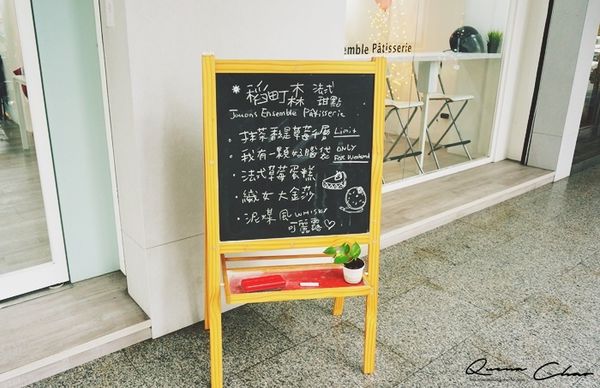 稻町森 法式甜點
Jouons Ensemble Pâtisserie
抹茶就是草莓千層 Limit
我有一顆好腦袋 ONLY For Weekend
法式草莓蛋糕
織女大金莎
泥煤風 Whisky 可麗露
semble Pâtisserie
Quena Chao